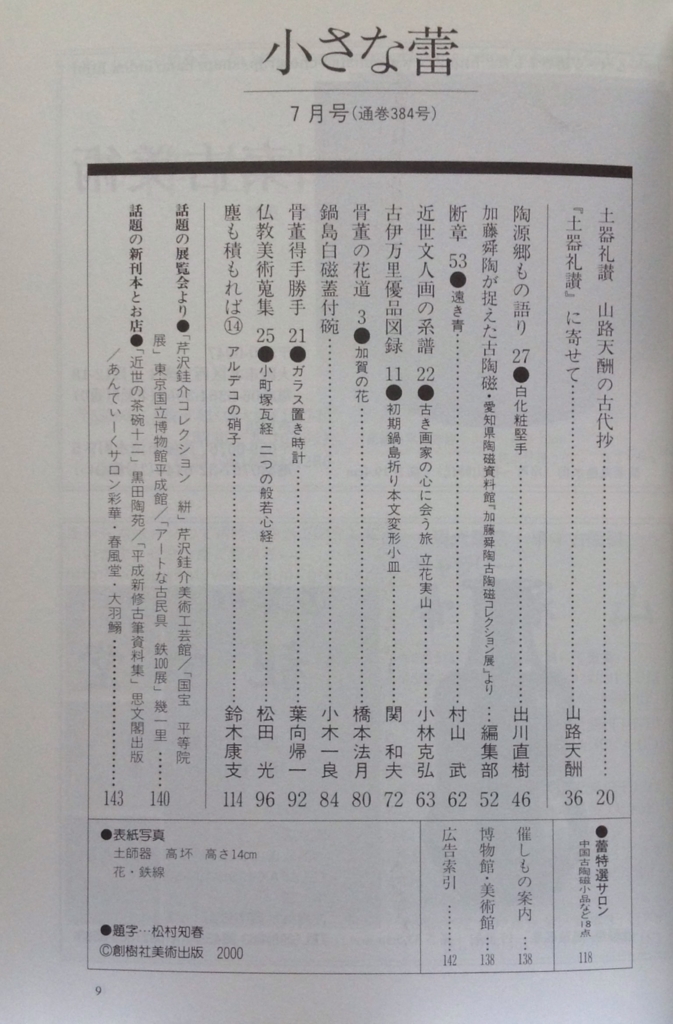 小さな蕾
7月号(通巻384号)
土器礼讃 山路天酬の古代抄 20
『土器礼讃』に寄せて 山路天酬 36
陶源郷もの語り 27●白化粧堅手 出川直樹 46
加藤舜陶が捉えた古陶磁・愛知県陶磁資料館『加藤舜陶古陶磁コレクション展』より…編集部 52
断章 53●遠き青 村山 武 62
近世文人画の系譜 22●古き画家の心に会う旅 立花実山 小林克弘 63
古伊万里優品図録 11●初期鍋島折り本文変形小皿 関 和夫 72
骨董の花道 3●加賀の花 橋本法月 80
鍋島白磁蓋付碗 小木一良 84
骨董得手勝手 21●ガラス置き時計 葉向帰一 92
仏教美術蒐集 25●小町塚瓦経 二つの般若心経 松田 光 96
塵も積もれば⑭ アルデコの硝子 鈴木康支 114
話題の展覧会より●「芹沢銈介コレクション 絣」芹沢銈介美術工芸館/「国宝 平等院
展」東京国立博物館平成館/「アートな古民具 鉄100展」幾一里 140
話題の新刊本とお店●「近世の茶碗十二」黒田陶苑/「平成新修古筆資料集」思文閣出版
/あんてぃーくサロン彩華・春風堂・大羽鰯 143
●蕾特選サロン
中国古陶磁小品など18点 118
催しもの案内 … 138
博物館・美術館 … 138
広告索引 ……… 142
●表紙写真
土師器 高坏 高さ14cm
花・鉄線
●題字…松村知春
©創樹社美術出版 2000
9